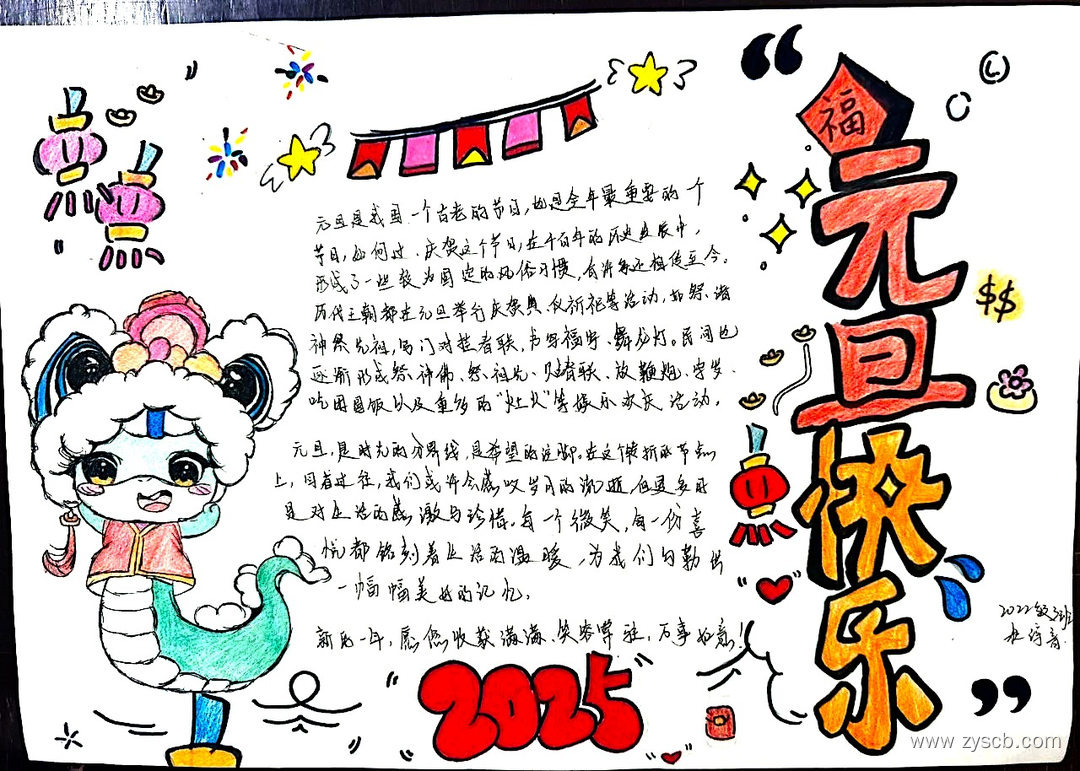 福
元旦快乐
元旦是我国一个古老的节日,也是全年最重要的一个
节日,如何过、庆贺这个节日,在千百年的历史发展中,
形成了一些较为固定的风俗习惯,有许多还相传至今。
历代王朝都在元旦举行庆贺典仪祈祀等活动,如祭诸
神祭先祖,写门对挂春联,书写福字、舞龙灯。民间也
逐渐形成祭神佛、祭祖先、贴春联、放鞭炮、守岁、
吃团圆饭以及众多的“社火”等娱乐欢庆活动。
元旦,是时光的分界线,是希望的注脚。在这个转折的节点
上,回首过往,我们或许会感叹岁月的流逝,但更多的
是对生活的感激与珍惜。每一个微笑,每一份喜
悦都铭刻着生活的温暖,为我们勾勒出
一幅幅美好的记忆。
新的一年,愿您收获满满、笑容常驻,万事如意!
2025
$$
2022级 班
www.zyscb.com